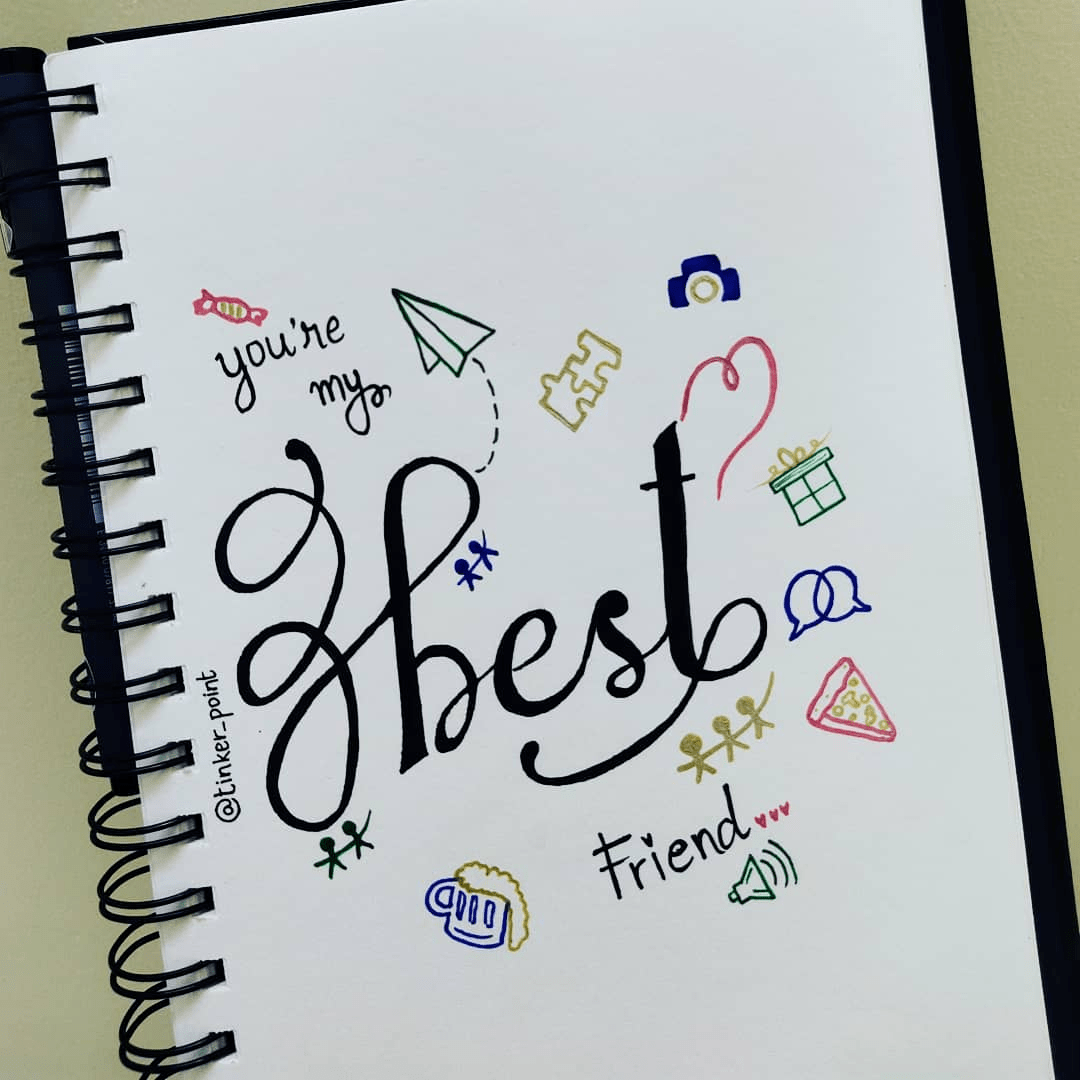 you're
my
best
Friend...
@tinker_point